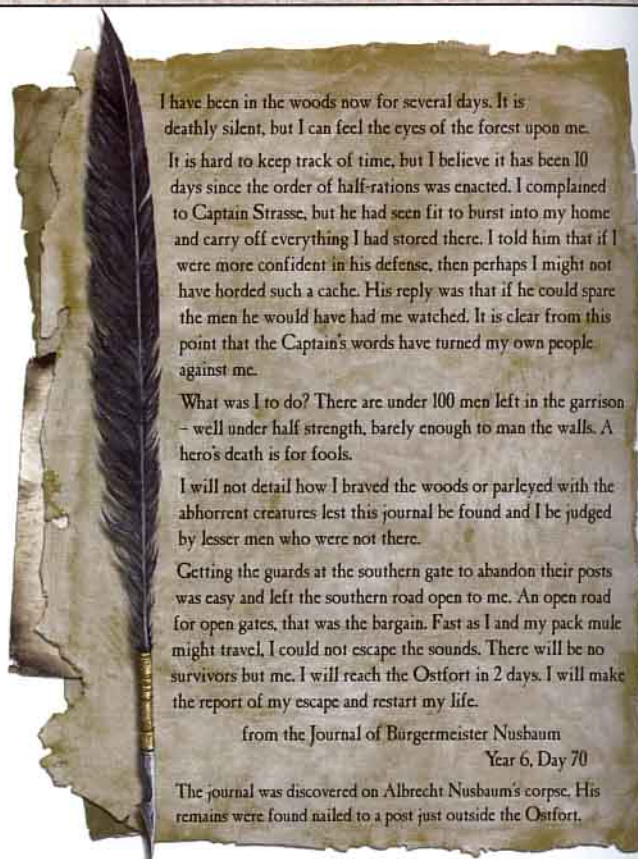 I have been in the woods now for several days. It is
deathly silent, but I can feel the eyes of the forest upon me.
It is hard to keep track of time, but I believe it has been 10
days since the order of half-rations was enacted. I complained
to Captain Strasse, but he had seen fit to burst into my home
and carry off everything I had stored there. I told him that if I
were more confident in his defense, then perhaps I might not
have horded such a cache. His reply was that if he could spare
the men he would have had me watched. It is clear from this
point that the Captain's words have turned my own people
against me.
What was I to do? There are under 100 men left in the garrison
– well under half strength, barely enough to man the walls. A
hero's death is for fools.
I will not detail how I braved the woods or parleyed with the
abhorrent creatures lest this journal be found and I be judged
by lesser men who were not there.
Getting the guards at the southern gate to abandon their posts
was easy and left the southern road open to me. An open road
for open gates, that was the bargain. Fast as I and my pack mule
might travel, I could not escape the sounds. There will be no
survivors but me. I will reach the Ostfort in 2 days. I will make
the report of my escape and restart my life.
from the Journal of Burgermeister Nusbaum
Year 6, Day 70
The journal was discovered on Albrecht Nusbaum's corpse. His
remains were found nailed to a post just outside the Ostfort.